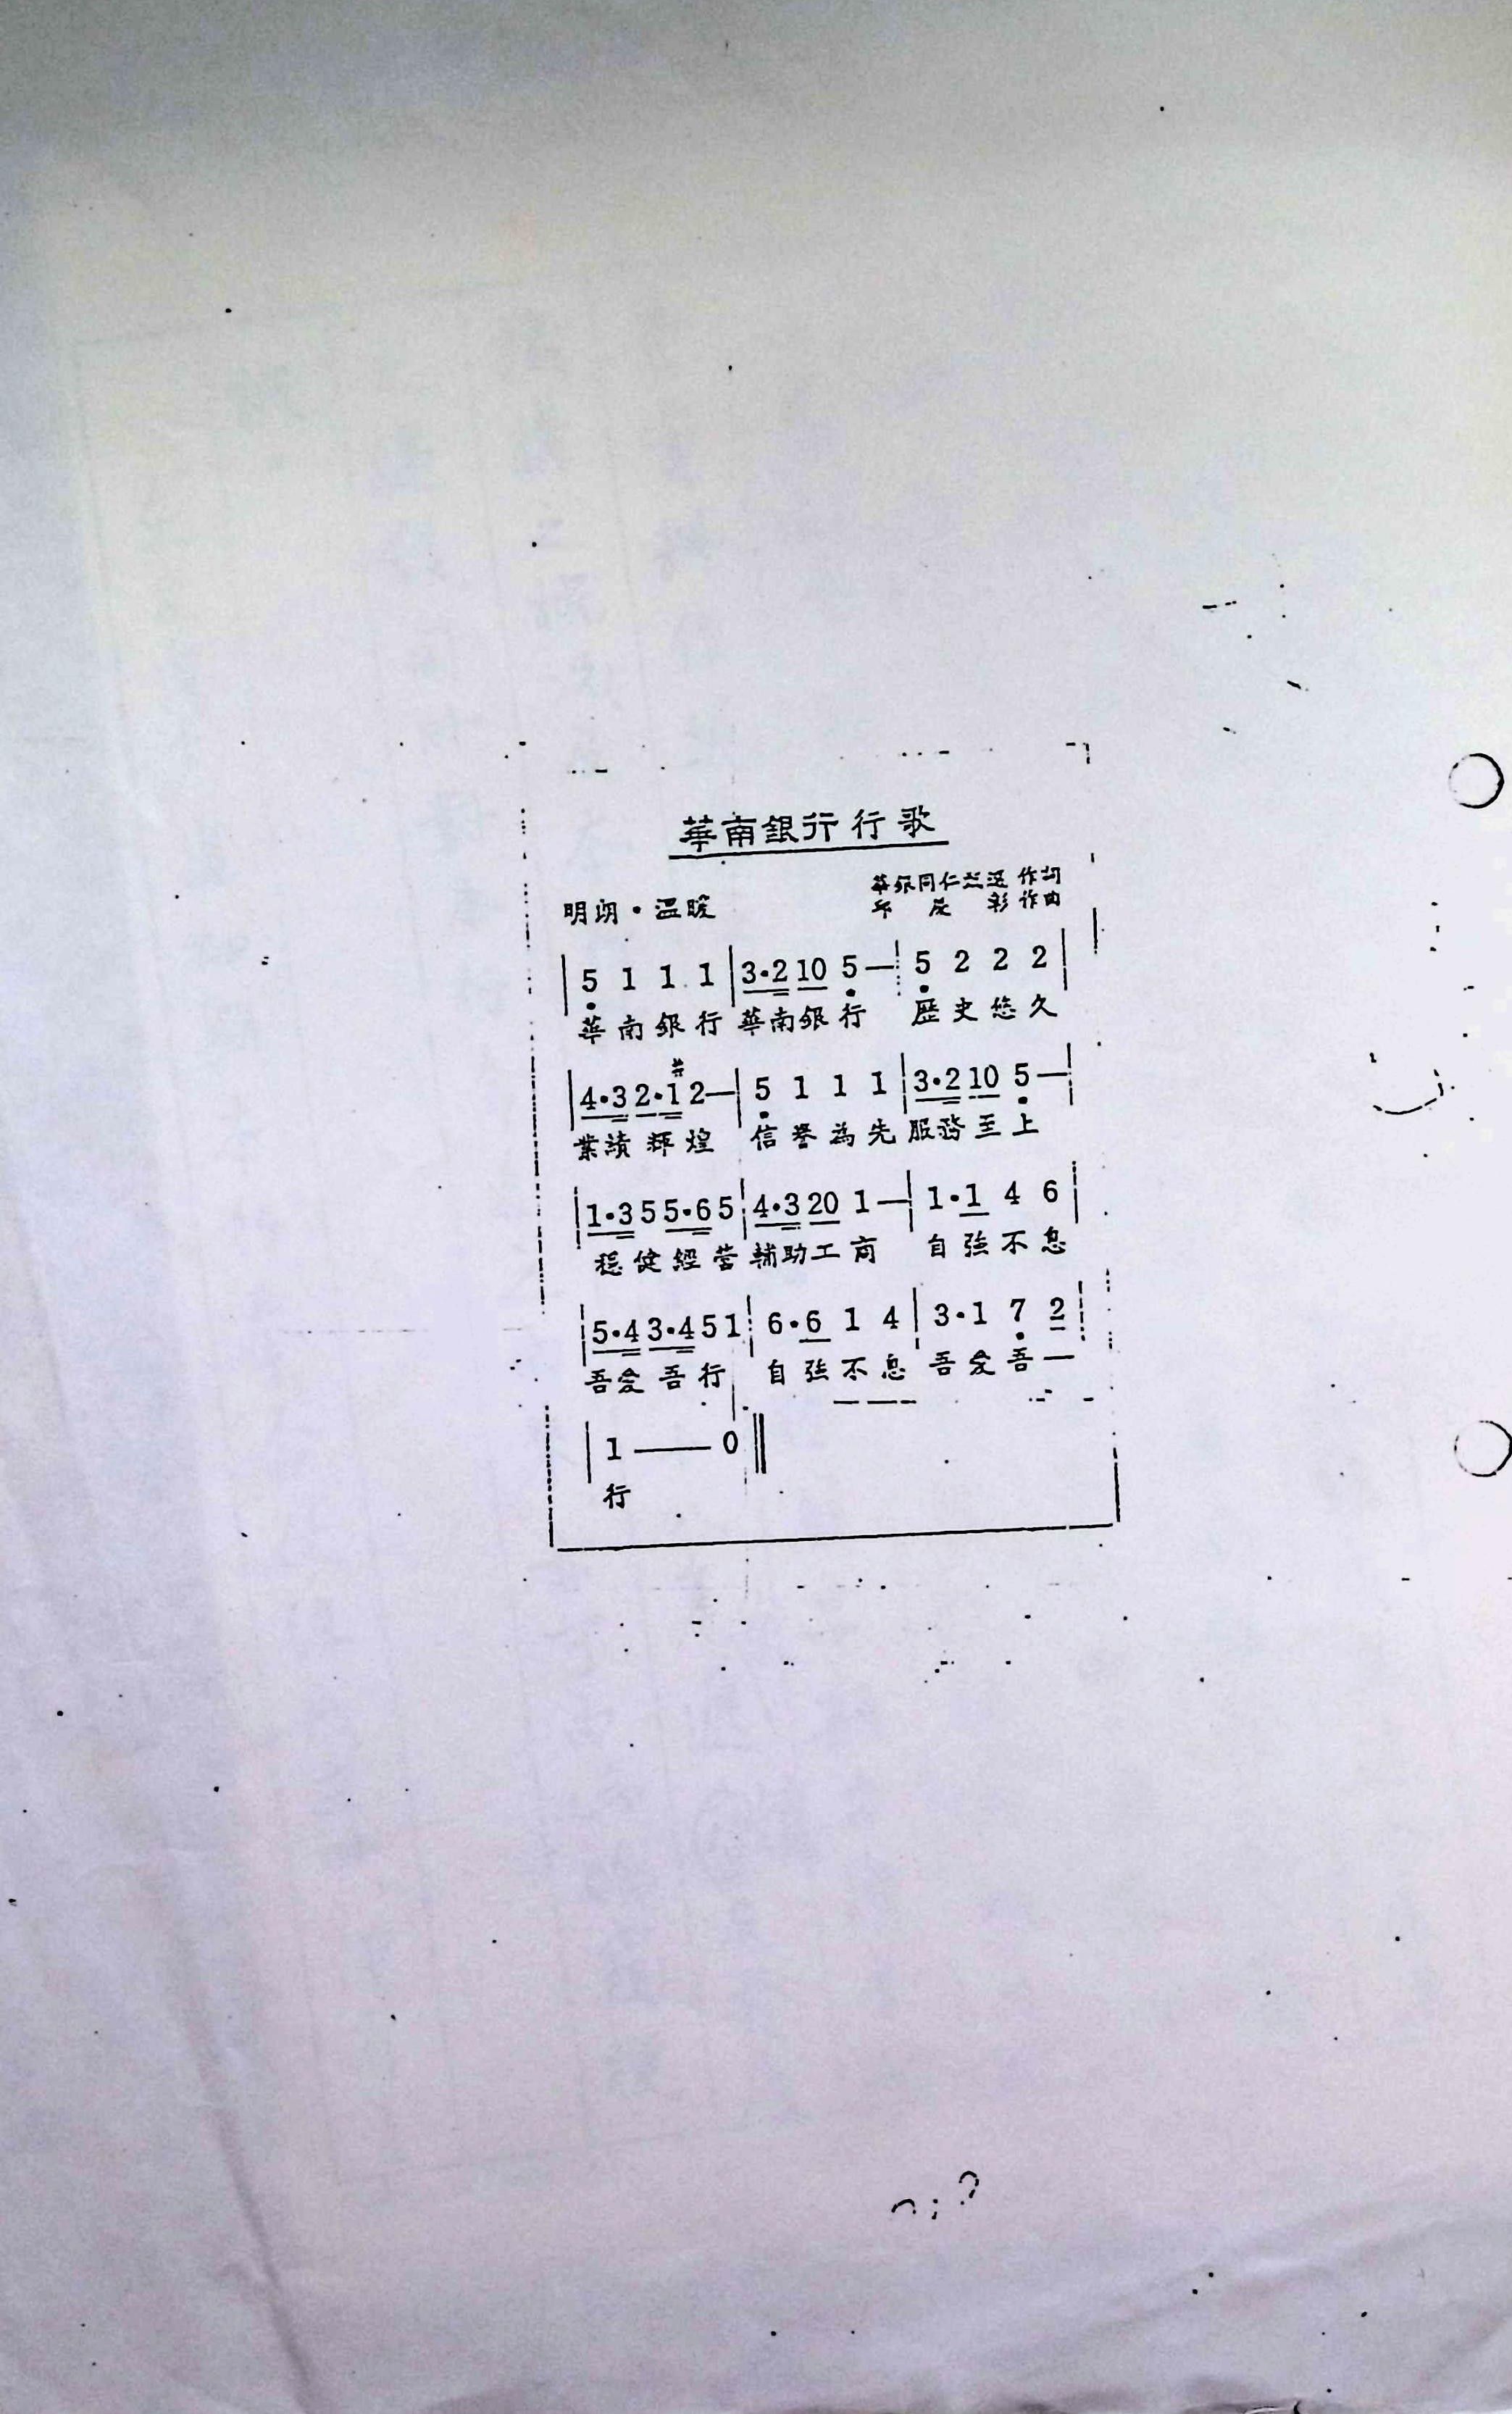 華南銀行行歌
華銀同仁 作詞
明朗・溫暖
邱 晨 彩 作曲
| 5̣ 1 1 1 | 3·2 10 5̣ — | 5̣ 2 2 2 |
華南銀行 華南銀行 歷史悠久
| 4·3 2·#1 2 — | 5̣ 1 1 1 | 3·2 10 5̣ — |
業績輝煌 信譽為先 服務至上
| 1·3 5 5·6 5 | 4·3 20 1 — | 1·1 4 6 |
穩健經營 輔助工商 自強不息
| 5·4 3·4 5 1 | 6·6 1 4 | 3·1 7̣ 2 |
吾愛吾行 自強不息 吾愛吾一
| 1 —— 0 ‖
行